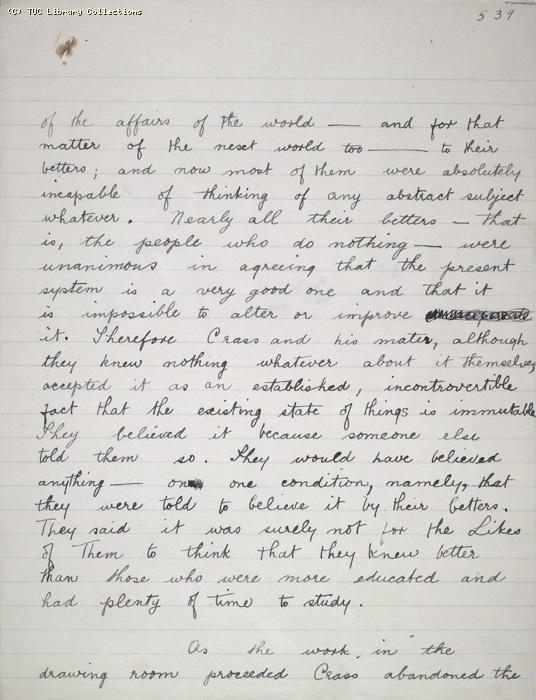 (C) TUC Library Collections
539
of the affairs of the world — and for that
matter of the next world too — to their
betters; and now most of them were absolutely
incapable of thinking of any abstract subject
whatever. Nearly all their betters — that
is, the people who do nothing — were
unanimous in agreeing that the present
system is a very good one and that it
is impossible to alter or improve
it. Therefore Crass and his mates, although
they knew nothing whatever about it themselves,
accepted it as an established, incontrovertible
fact that the existing state of things is immutable.
They believed it because someone else
told them so. They would have believed
anything — on one condition, namely, that
they were told to believe it by their betters.
They said it was surely not for the Likes
of Them to think that they knew better
than those who were more educated and
had plenty of time to study.
As the work in the
drawing room proceeded Crass abandoned the